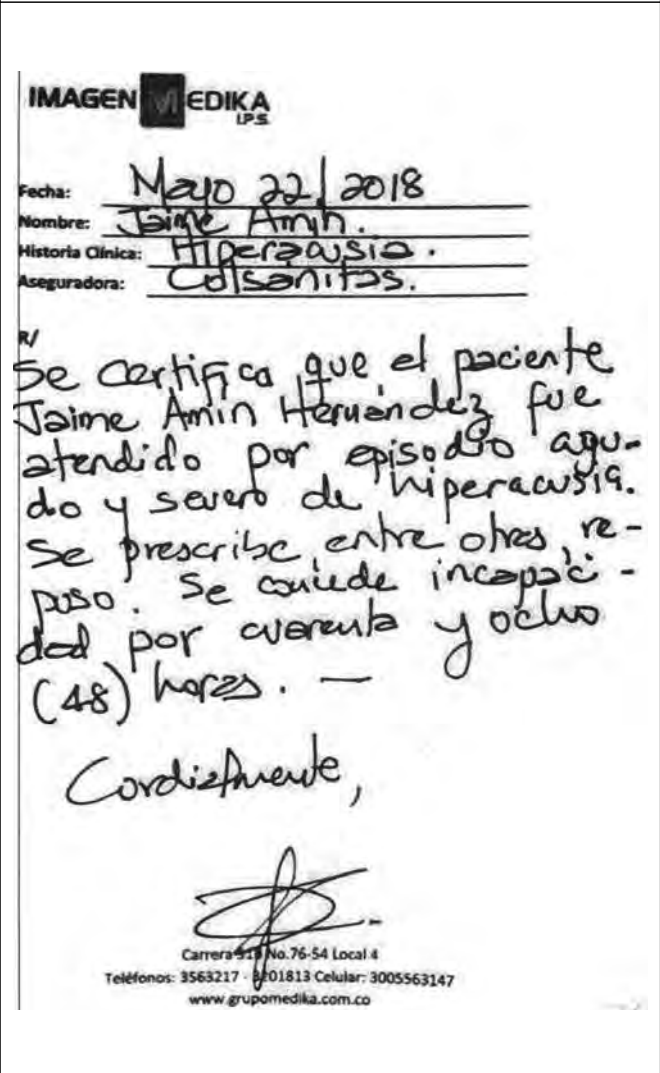 IMAGEN MEDIKA
I.P.S.
Fecha: Mayo 22/2018
Nombre: Jaime Amin.
Historia Clínica: Hiperacusia.
Aseguradora: Colsanitas.
R/
Se certifica que el paciente
Jaime Amin Hernández fue
atendido por episodio agu-
do y severo de hiperacusia.
Se prescribe, entre otras, re-
poso. Se concede incapaci-
dad por cuarenta y ocho
(48) horas. —
Cordialmente,
Carrera No.76-54 Local 4
Teléfonos: 3563217 - 3201813 Celular: 3005563147
www.grupomedika.com.co